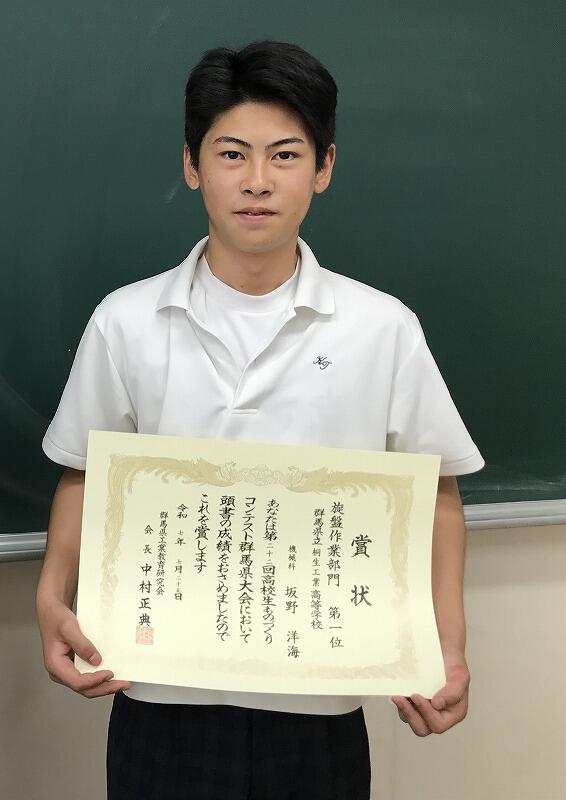 賞状
旋盤作業部門 第一位
群馬県立桐生工業高等学校
機械科 坂野洋海
あなたは第二十三回高校生ものづくり
コンテスト群馬県大会において
頭書の成績をおさめましたので
これを賞します
令和七年七月二十五日
群馬県工業教育研究会
会長 中村正典